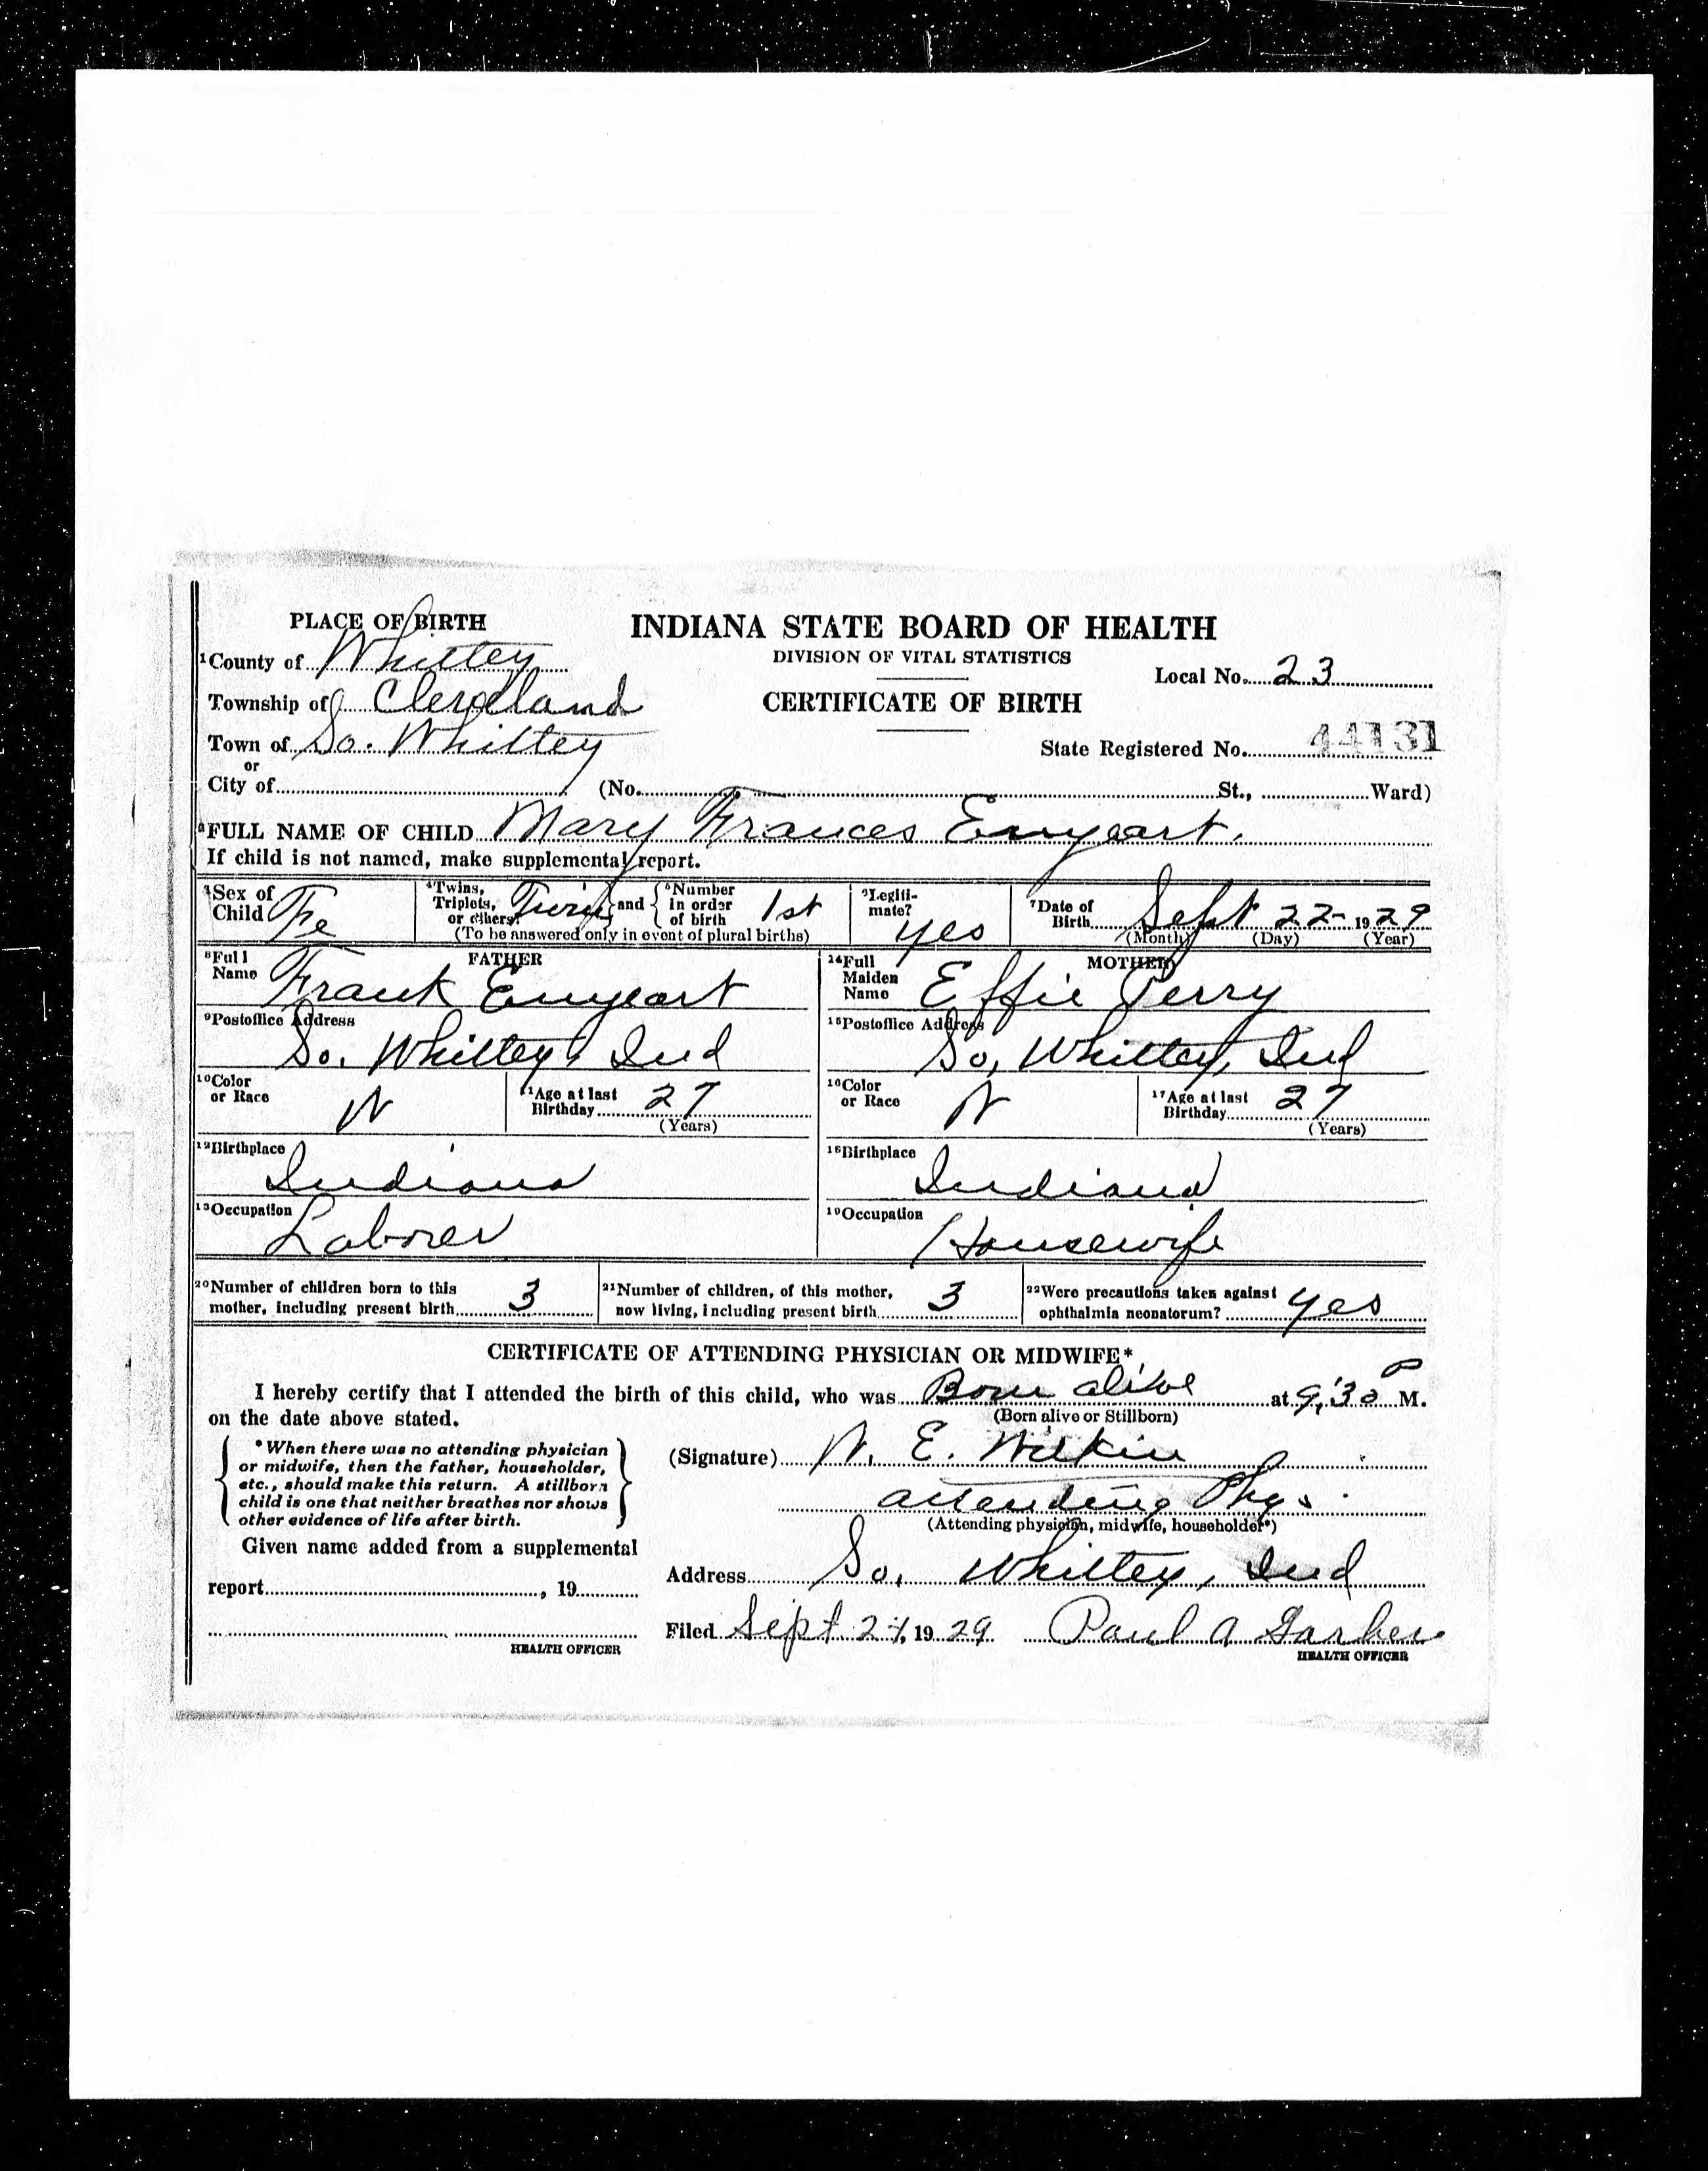 PLACE OF BIRTH
INDIANA STATE BOARD OF HEALTH
DIVISION OF VITAL STATISTICS
CERTIFICATE OF BIRTH
1 County of Whitley
Local No. 23
Township of Cleveland
Town of So. Whitley
State Registered No. 44131
or
City of (No. St., Ward)
2 FULL NAME OF CHILD Mary Frances Enyeart.
If child is not named, make supplemental report.
3 Sex of Child Fe
4 Twins, Triplets, or others? Twin and 5 Number in order of birth 1st
(To be answered only in event of plural births)
6 Legiti-mate? yes
7 Date of Birth Sept 22- 1929
(Month) (Day) (Year)
FATHER
8 Full Name Frank Enyeart
MOTHER
14 Full Maiden Name Effie Perry
9 Postoffice Address
So. Whitley, Ind
15 Postoffice Address
So, Whitley, Ind
10 Color or Race W
11 Age at last Birthday 27
(Years)
16 Color or Race W
17 Age at last Birthday 27
(Years)
12 Birthplace
Indiana
18 Birthplace
Indiana
13 Occupation
Laborer
19 Occupation
Housewife
20 Number of children born to this mother, including present birth 3
21 Number of children, of this mother, now living, including present birth 3
22 Were precautions taken against ophthalmia neonatorum? yes
CERTIFICATE OF ATTENDING PHYSICIAN OR MIDWIFE*
I hereby certify that I attended the birth of this child, who was Born alive at 9:30 P M.
on the date above stated.
(Born alive or Stillborn)
*When there was no attending physician
or midwife, then the father, householder,
etc., should make this return. A stillborn
child is one that neither breathes nor shows
other evidence of life after birth.
(Signature) W. E. Wilkin
attending Phys.
(Attending physician, midwife, householder*)
Given name added from a supplemental
report , 19
Address So, Whitley, Ind
Filed Sept. , 1929 Paul A Garber
HEALTH OFFICER
HEALTH OFFICER